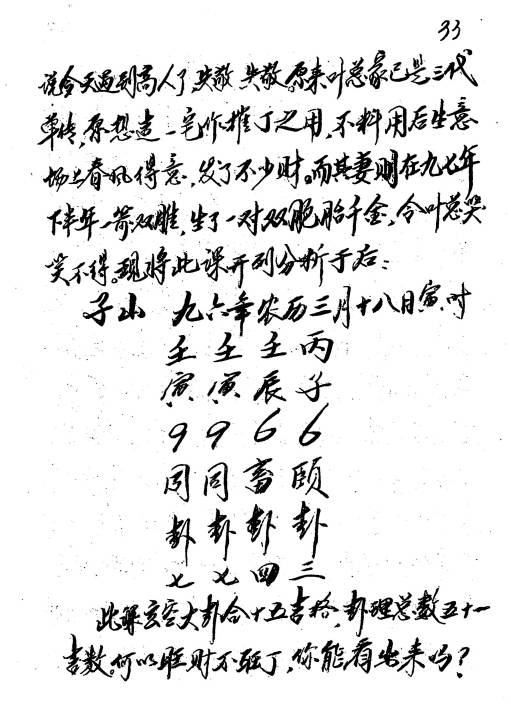 33
说今天遇到高人了,失敬,失敬。原来叶总家已是三代
单传,原想造一宅作催丁之用,不料用后生意
场上春风得意,发了不少财。而其妻则在九七年
下半年一箭双雕,生了一对双胞胎千金,令叶总哭
笑不得。现将此课开列分析于后:
子山 九六年农历三月十八日寅时
壬 壬 壬 丙
寅 寅 辰 子
9 9 6 6
同 同 畜 颐
卦 卦 卦 卦
七 七 四 三
此课玄空大卦合十五吉格,卦理总数五十一
吉数。何以旺财不旺丁,你能看出来吗?